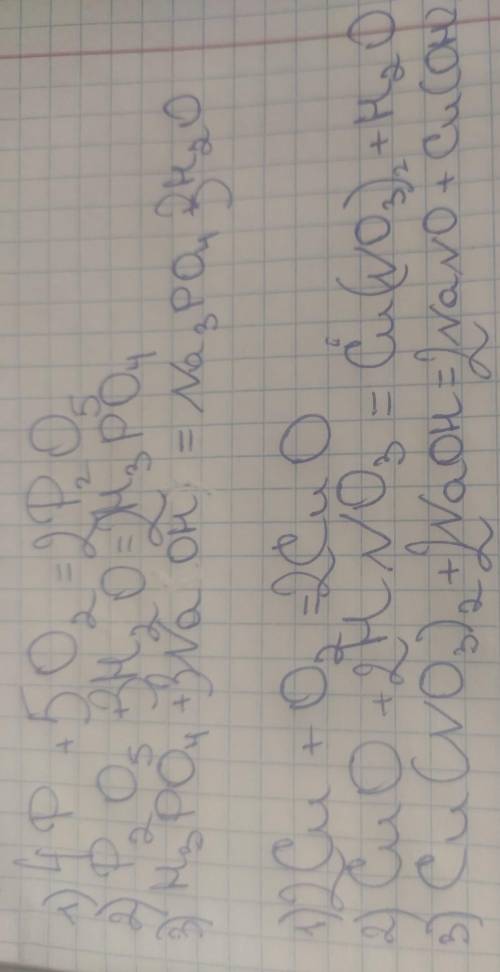 1) 4P + 5O2 = 2P2O5
2) P2O5 + 3H2O = 2H3PO4
3) H3PO4 + 3NaOH = Na3PO4 + 3H2O
1) 2Cu + O2 = 2CuO
2) CuO + 2HNO3 = Cu(NO3)2 + H2O
3) Cu(NO3)2 + 2NaOH = 2NaNO + Cu(OH)